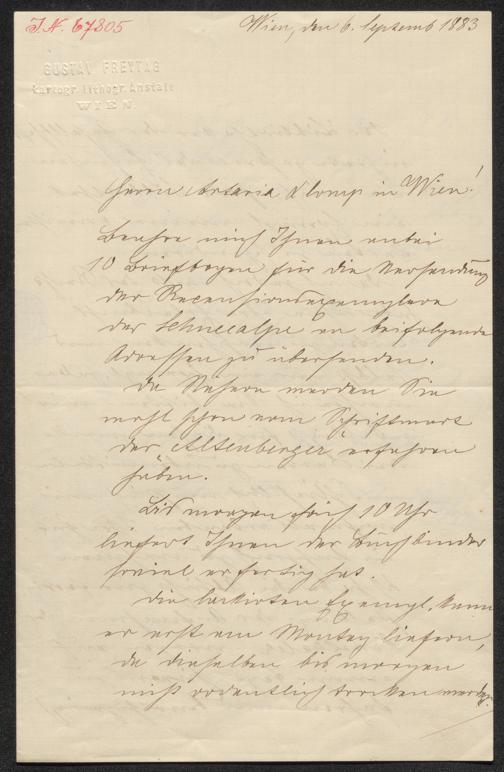 J.N. 67305
Wien, den 6. Septemb 1883
GUSTAV FREYTAG
kartogr. lithogr. Anstalt
WIEN.
Herrn Artaria & Comp in Wien!
Beehre mich Ihnen anbei
10 Briefbogen für die Versendung
der Recensionsexemplare
der Schneealpe an beifolgende
Adressen zu übersenden.
Das Nähere werden Sie
wohl schon vom Schriftwart
der Altenberger erfahren
haben.
Bis morgen früh 10 Uhr
liefert Ihnen der Buchbinder
soviel er fertig hat.
Die lackirten Exempl. kann
er erst am Montag liefern,
da dieselben bis morgen
nicht ordentlich trocken werden.